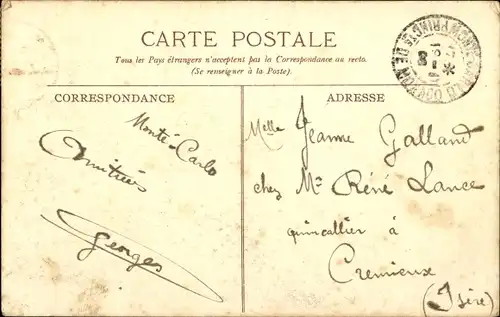 CARTE POSTALE
Tous les Pays étrangers n'acceptent pas la Correspondance au recto.
(Se renseigner à la Poste).
CORRESPONDANCE
Monté-Carlo
Amitiés
Georges
ADRESSE
Melle Jeanne Galland
chez Mr Réné Lance
quincallier à
Cremieux
(Isère)